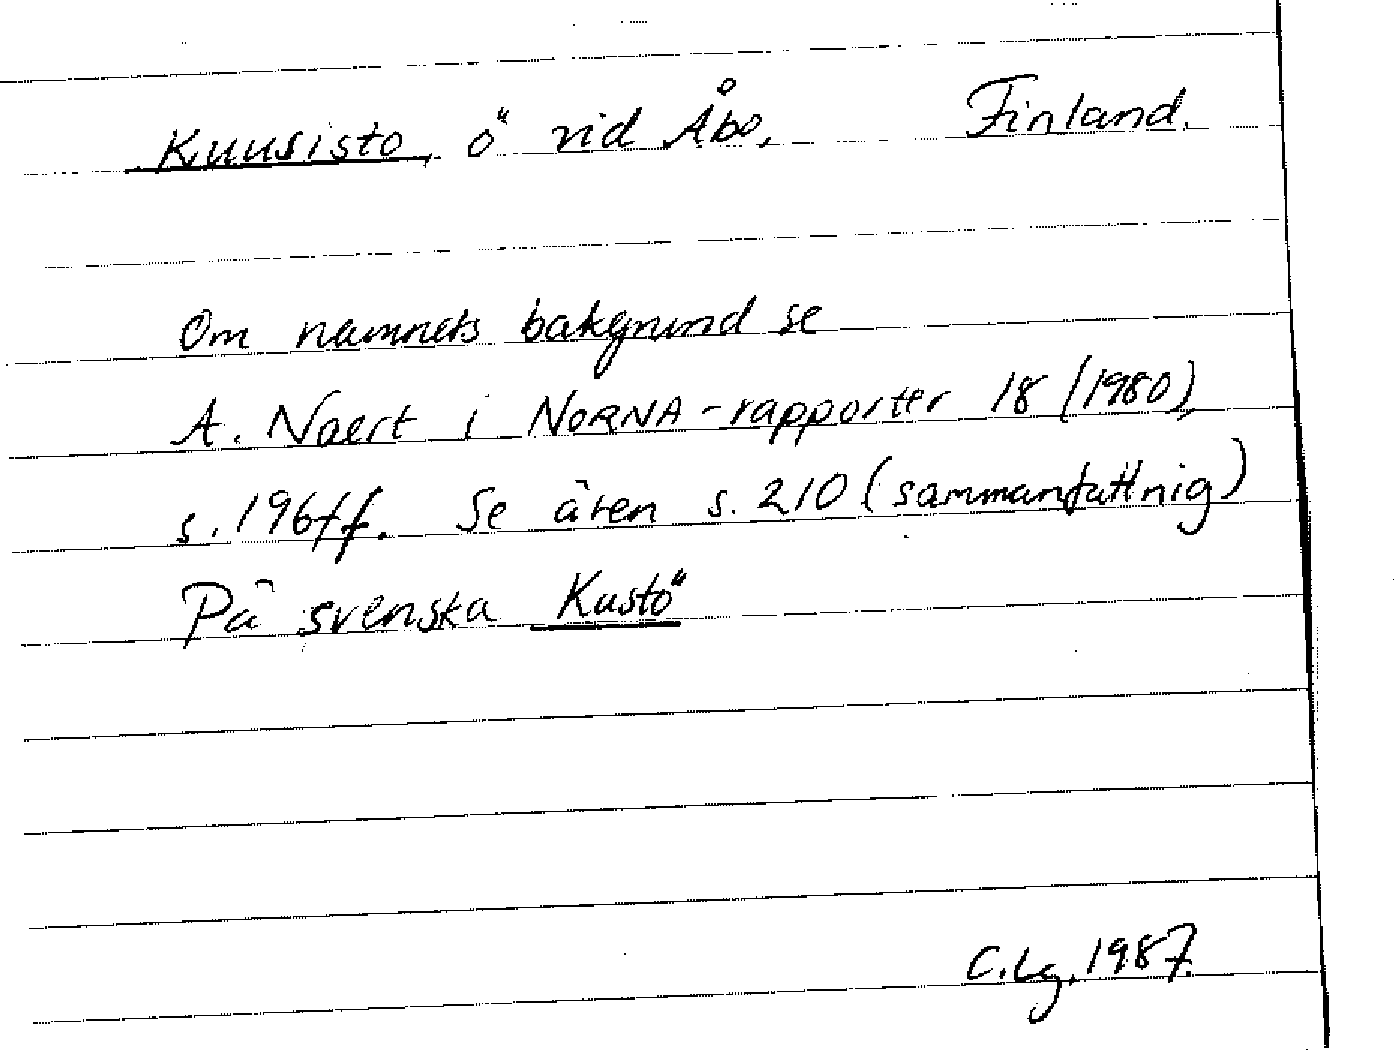 Kuusisto, ö vid Åbo, Finland.
Om namnets bakgrund se
A. Naert i NORNA-rapporter 18 (1980),
s. 196ff. Se även s. 210 (sammanfattnig)
På svenska Kustö
C.Lg. 1987.